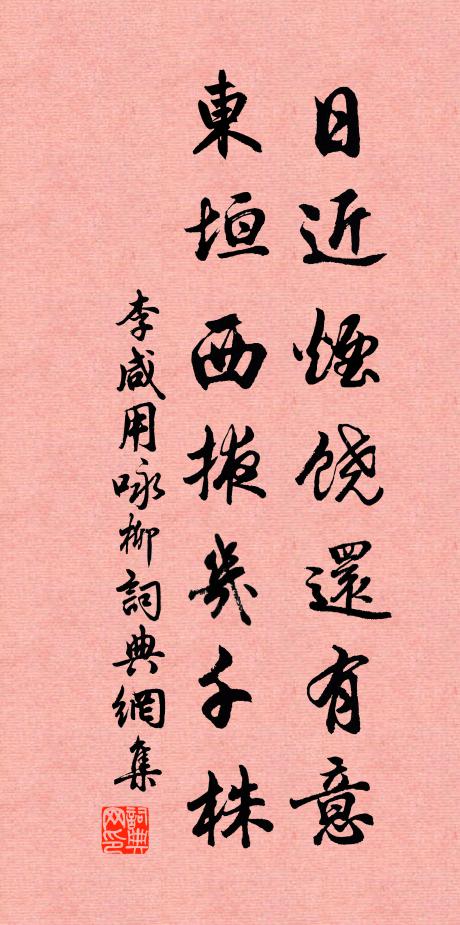 日近煙饒還有意
東垣西掖幾千株
李咸用咏柳詞典網集
詞典網印